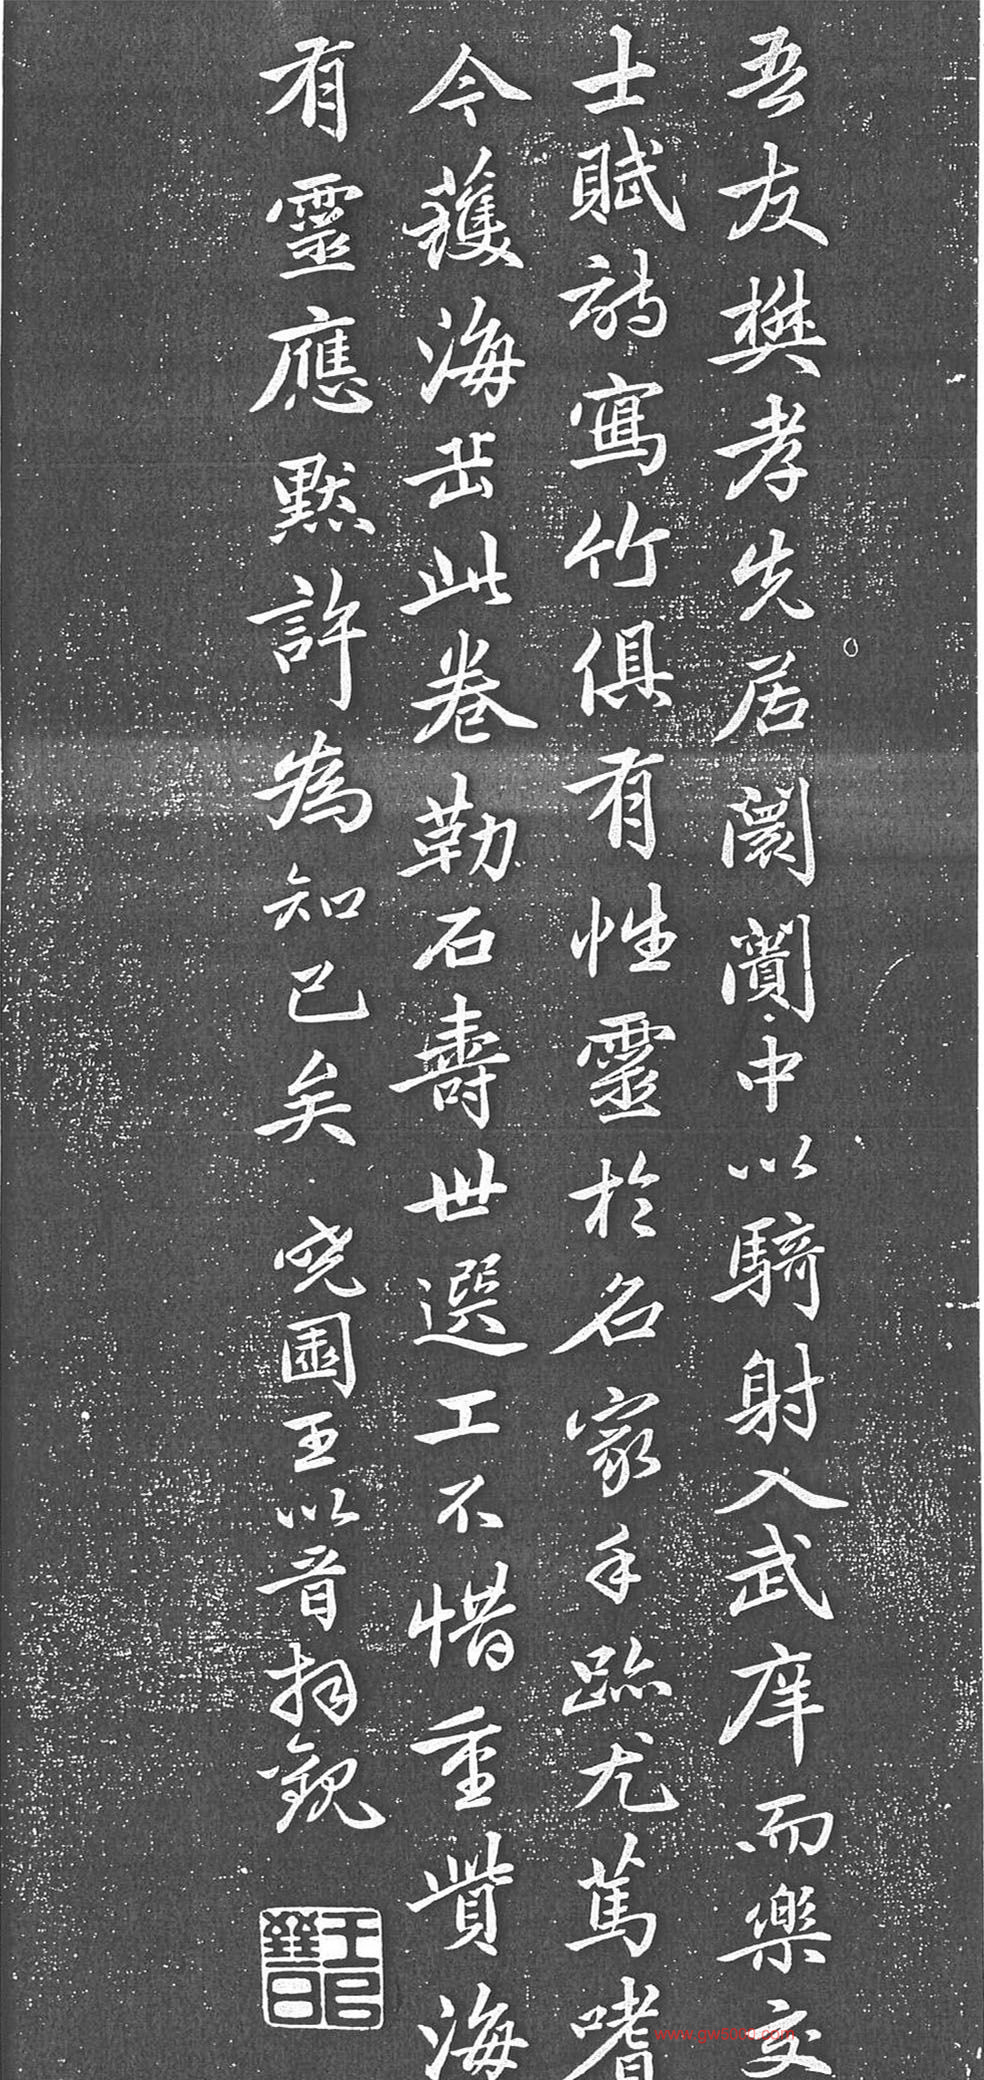 吾友樊孝先居闤闠中以騎射入武庠而樂交
士賦詩寫竹俱有性靈於名家手跡尤篤嗜
今獲海岳此卷勒石壽世選工不惜重貲海
有靈應默許為知己矣 曉園王以晉拜觀
www.gw8000.com